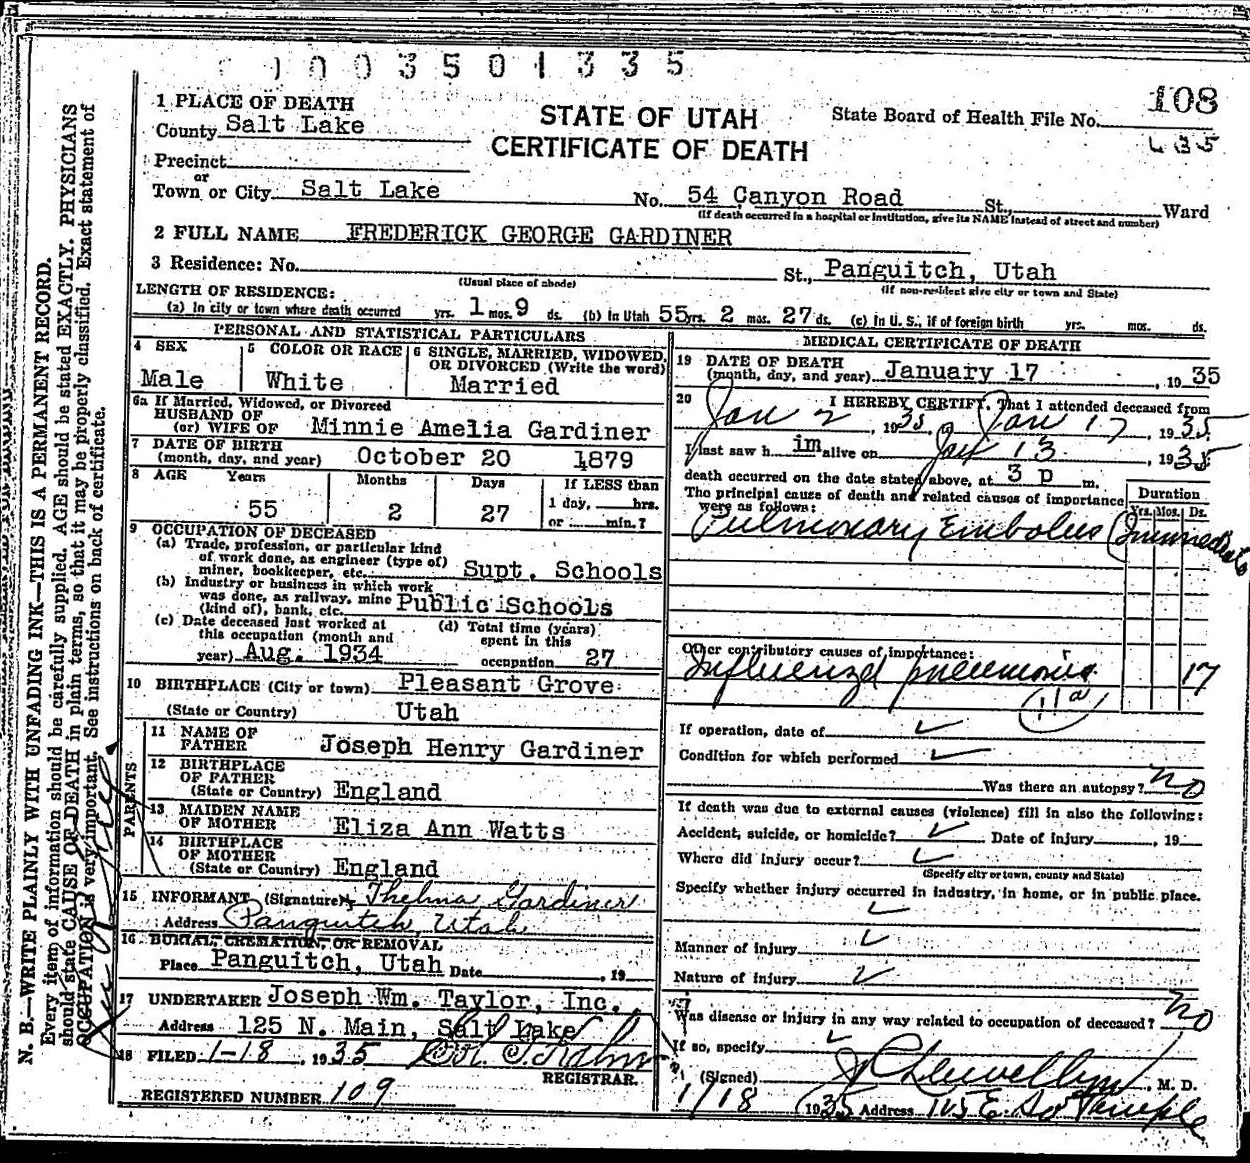 1003501335
108
635
1 PLACE OF DEATH
County Salt Lake
Precinct
or
Town or City Salt Lake
STATE OF UTAH
CERTIFICATE OF DEATH
State Board of Health File No.
No. 54 Canyon Road St., Ward
(If death occurred in a hospital or institution, give its NAME instead of street and number)
2 FULL NAME FREDERICK GEORGE GARDINER
3 Residence: No. St., Panguitch, Utah
(Usual place of abode) (If non-resident give city or town and State)
LENGTH OF RESIDENCE:
(a) In city or town where death occurred yrs. 1 mos. 9 ds. (b) In Utah 55 yrs. 2 mos. 27 ds. (c) In U. S., if of foreign birth yrs. mos. ds.
PERSONAL AND STATISTICAL PARTICULARS
4 SEX
Male
5 COLOR OR RACE
White
6 SINGLE, MARRIED, WIDOWED,
OR DIVORCED (Write the word)
Married
6a If Married, Widowed, or Divorced
HUSBAND OF
(or) WIFE OF Minnie Amelia Gardiner
7 DATE OF BIRTH
(month, day, and year) October 20 1879
8 AGE Years Months Days If LESS than
1 day, hrs.
55 2 27 or min.?
9 OCCUPATION OF DECEASED
(a) Trade, profession, or particular kind
of work done, as engineer (type of)
miner, bookkeeper, etc. Supt. Schools
(b) Industry or business in which work
was done, as railway, mine
(kind of), bank, etc. Public Schools
(c) Date deceased last worked at
this occupation (month and
year) Aug. 1934
(d) Total time (years)
spent in this
occupation 27
10 BIRTHPLACE (City or town) Pleasant Grove
(State or Country) Utah
PARENTS
11 NAME OF
FATHER Joseph Henry Gardiner
12 BIRTHPLACE
OF FATHER
(State or Country) England
13 MAIDEN NAME
OF MOTHER Eliza Ann Watts
14 BIRTHPLACE
OF MOTHER
(State or Country) England
15 INFORMANT (Signature) Thelma Gardiner
Address Panguitch, Utah
16 BURIAL, CREMATION, OR REMOVAL
Place Panguitch, Utah Date , 19
17 UNDERTAKER Joseph Wm. Taylor, Inc.
Address 125 N. Main, Salt Lake
18 FILED 1-18, 1935
REGISTRAR.
REGISTERED NUMBER 109
MEDICAL CERTIFICATE OF DEATH
19 DATE OF DEATH
(month, day, and year) January 17, 1935
20 I HEREBY CERTIFY, That I attended deceased from
Jan 2 1935, Jan 17, 1935
I last saw him alive on Jan 13, 1935
death occurred on the date stated above, at 3 p m.
The principal cause of death and related causes of importance
were as follows:
Duration
Yrs. Mos. Ds.
Pulmonary Embolus Immediate
Other contributory causes of importance:
Influenzal pneumonia 17
11a
If operation, date of
Condition for which performed
Was there an autopsy? no
If death was due to external causes (violence) fill in also the following:
Accident, suicide, or homicide? Date of injury , 19
Where did injury occur?
(Specify city or town, county and State)
Specify whether injury occurred in industry, in home, or in public place.
Manner of injury
Nature of injury
Was disease or injury in any way related to occupation of deceased? no
If so, specify
(Signed) Llewellyn, M. D.
1/18 1935 Address 115 E. So Temple
N. B.—WRITE PLAINLY WITH UNFADING INK—THIS IS A PERMANENT RECORD.
Every item of information should be carefully supplied. AGE should be stated EXACTLY. PHYSICIANS
should state CAUSE OF DEATH in plain terms, so that it may be properly classified. Exact statement of
OCCUPATION is very important. See instructions on back of certificate.